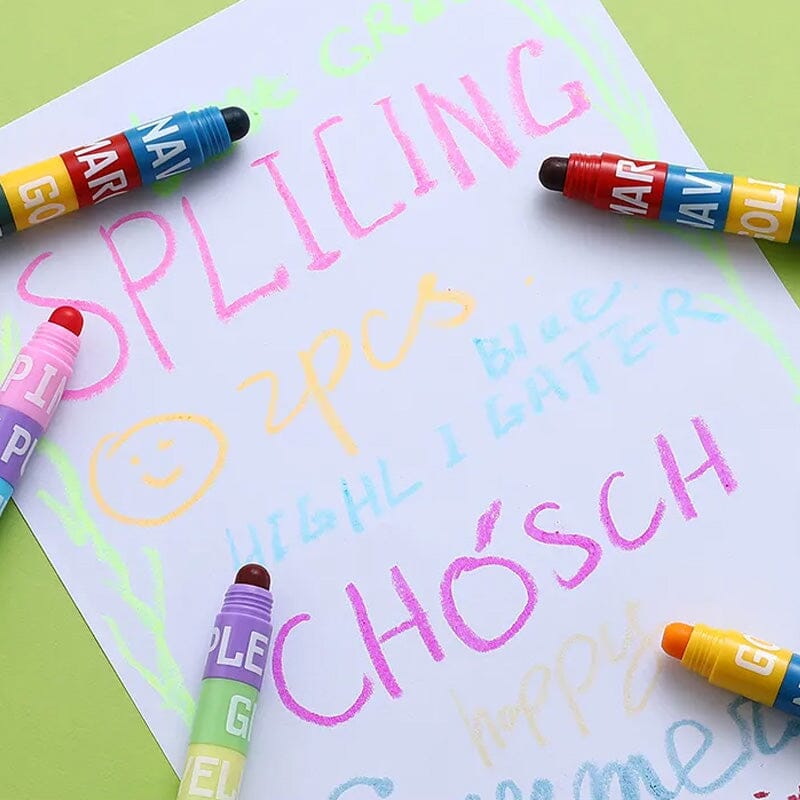 SPLICING
2pcs
Blue
HIGHLIGATER
CHÓSCH
happy
Summer
NAV
MAR
GO
MAR
NAV
GOL
PIN
PU
PLE
G
YELL
GO